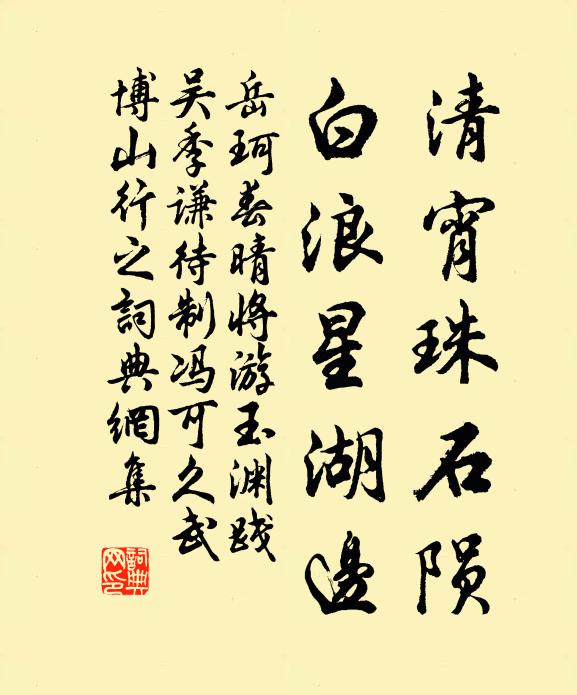 清宵珠石陨
白浪星湖邊
岳珂春晴将游玉渊践
吴季谦待制冯可久武
博山行之詞典網集
詞典網印